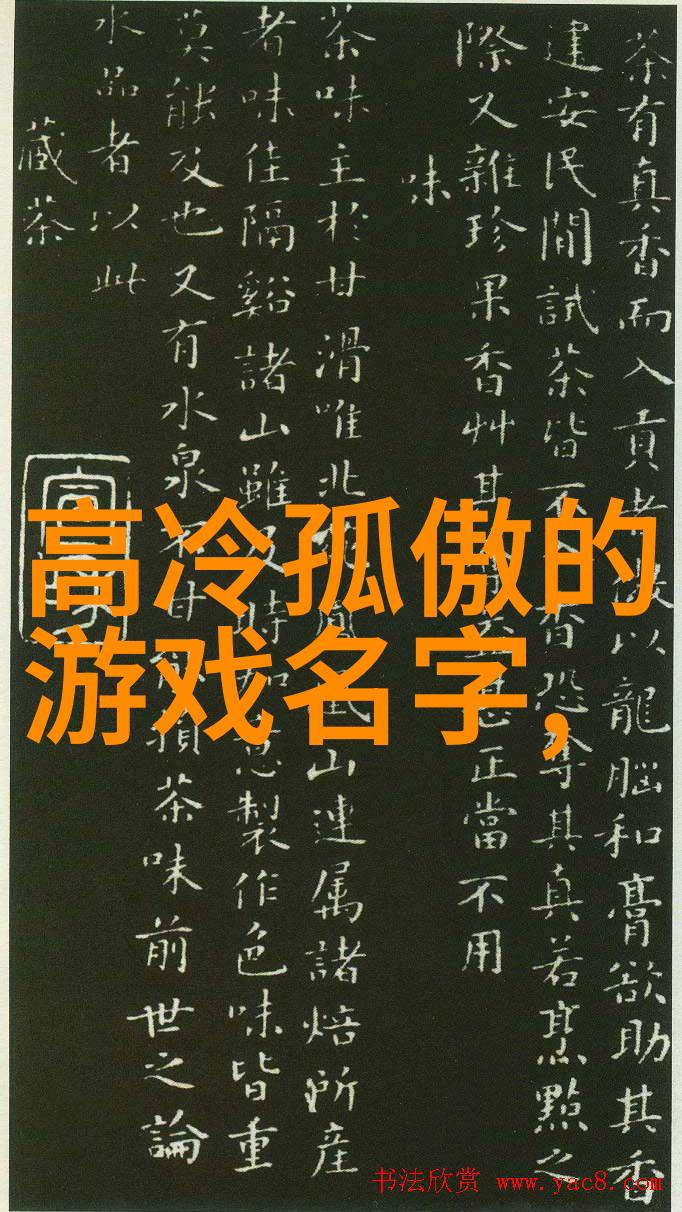 茶有真香而入貢者微以龍腦和膏欲助其香
建安民間試茶皆不入香恐奪其真若烹點之
際又雜珍果香艸其正當不用
味
茶味主於甘滑唯北山連属諸焙所産
者味佳隔谿諸山雖及時加意製作色味皆重
莫能及也又有水泉不甘能損茶味前世之論
水品者以此
藏茶
高冷孤傲的
游戏名字,
书法欣赏 www.yac8.com